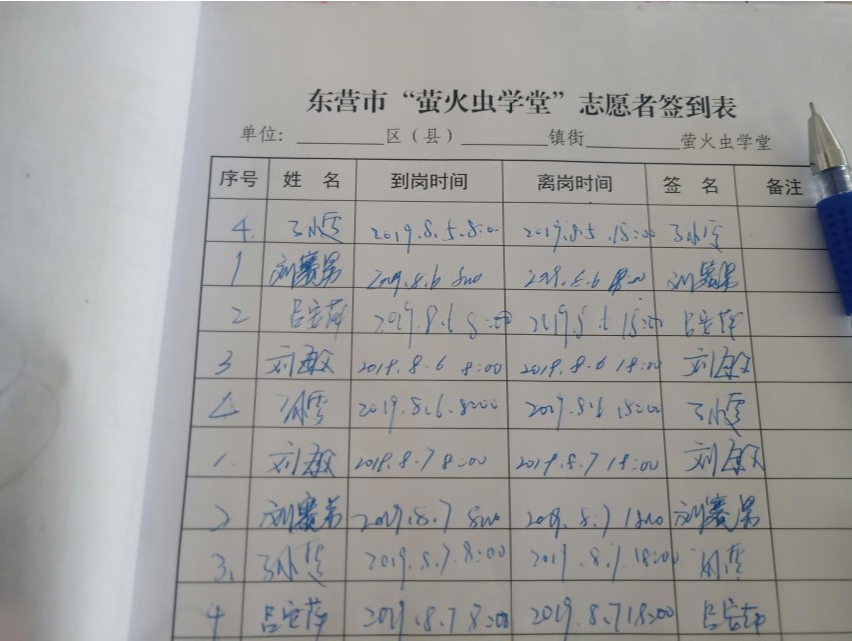 东营市“萤火虫学堂”志愿者签到表
单位：________区（县）________镇街________萤火虫学堂
序号 姓 名 到岗时间 离岗时间 签 名 备注
4. 2019.8.5.8:0 2019.8.5.18:00
1 刘赛男 2019.8.6 8:00 2019.8.6 18:00 刘赛男
2 吕宝萍 2019.8.6 8:00 2019.8.6 18:00 吕宝萍
3 刘敏 2019.8.6 8:00 2019.8.6 18:00 刘敏
4 2019.8.6.8:00 2019.8.6 18:00
1. 刘敏 2019.8.7 8:00 2019.8.7 18:00 刘敏
2 刘赛男 2019.8.7 8:00 2019.8.7 18:00 刘赛男
3. 2019.8.7.8:00 2019.8.7.18:00
4 吕宝萍 2019.8.7 8:00 2019.8.7 18:00 吕宝萍